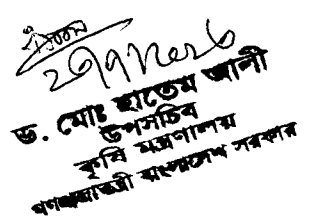 ড. মোঃ হাতেম আলী
উপসচিব
কৃষি মন্ত্রণালয়
গণপ্রজাতন্ত্রী বাংলাদেশ সরকার